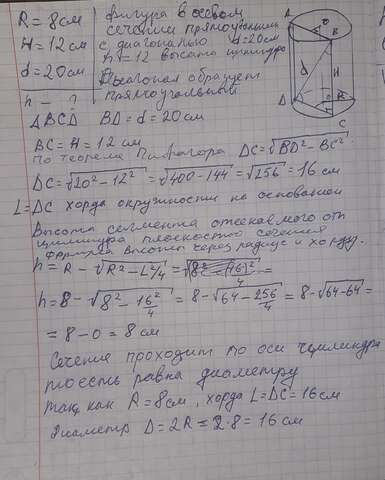 R = 8см
H = 12см
d = 20см
h - ?
фигура в осевом
сечении прямоугольник
с диагональю d=20см
h = 12 высота цилиндра
Диагональ образует
прямоугольный
A
O
B
d
H
D
R
C
ABCD BD = d = 20см
BC = H = 12см
По теорема Пифагора DC = √BD² - BC²
DC = √20² - 12² = √400 - 144 = √256 = 16 см
L = DC хорда окружности на основании
Высота сегмента отсекаемого от
цилиндра плоскостью сечения
Формула высоты через радиус и хорду.
h = R - √R² - L²/4 =
h = 8 - √8² - 16²/4 = 8 - √64 - 256/4 = 8 - √64-64 =
= 8 - 0 = 8 см
Сечение проходит по оси цилиндра
тоесть равна диаметру
так как R = 8см, хорда L = DC = 16см
Диаметр D = 2R = 2·8 = 16см